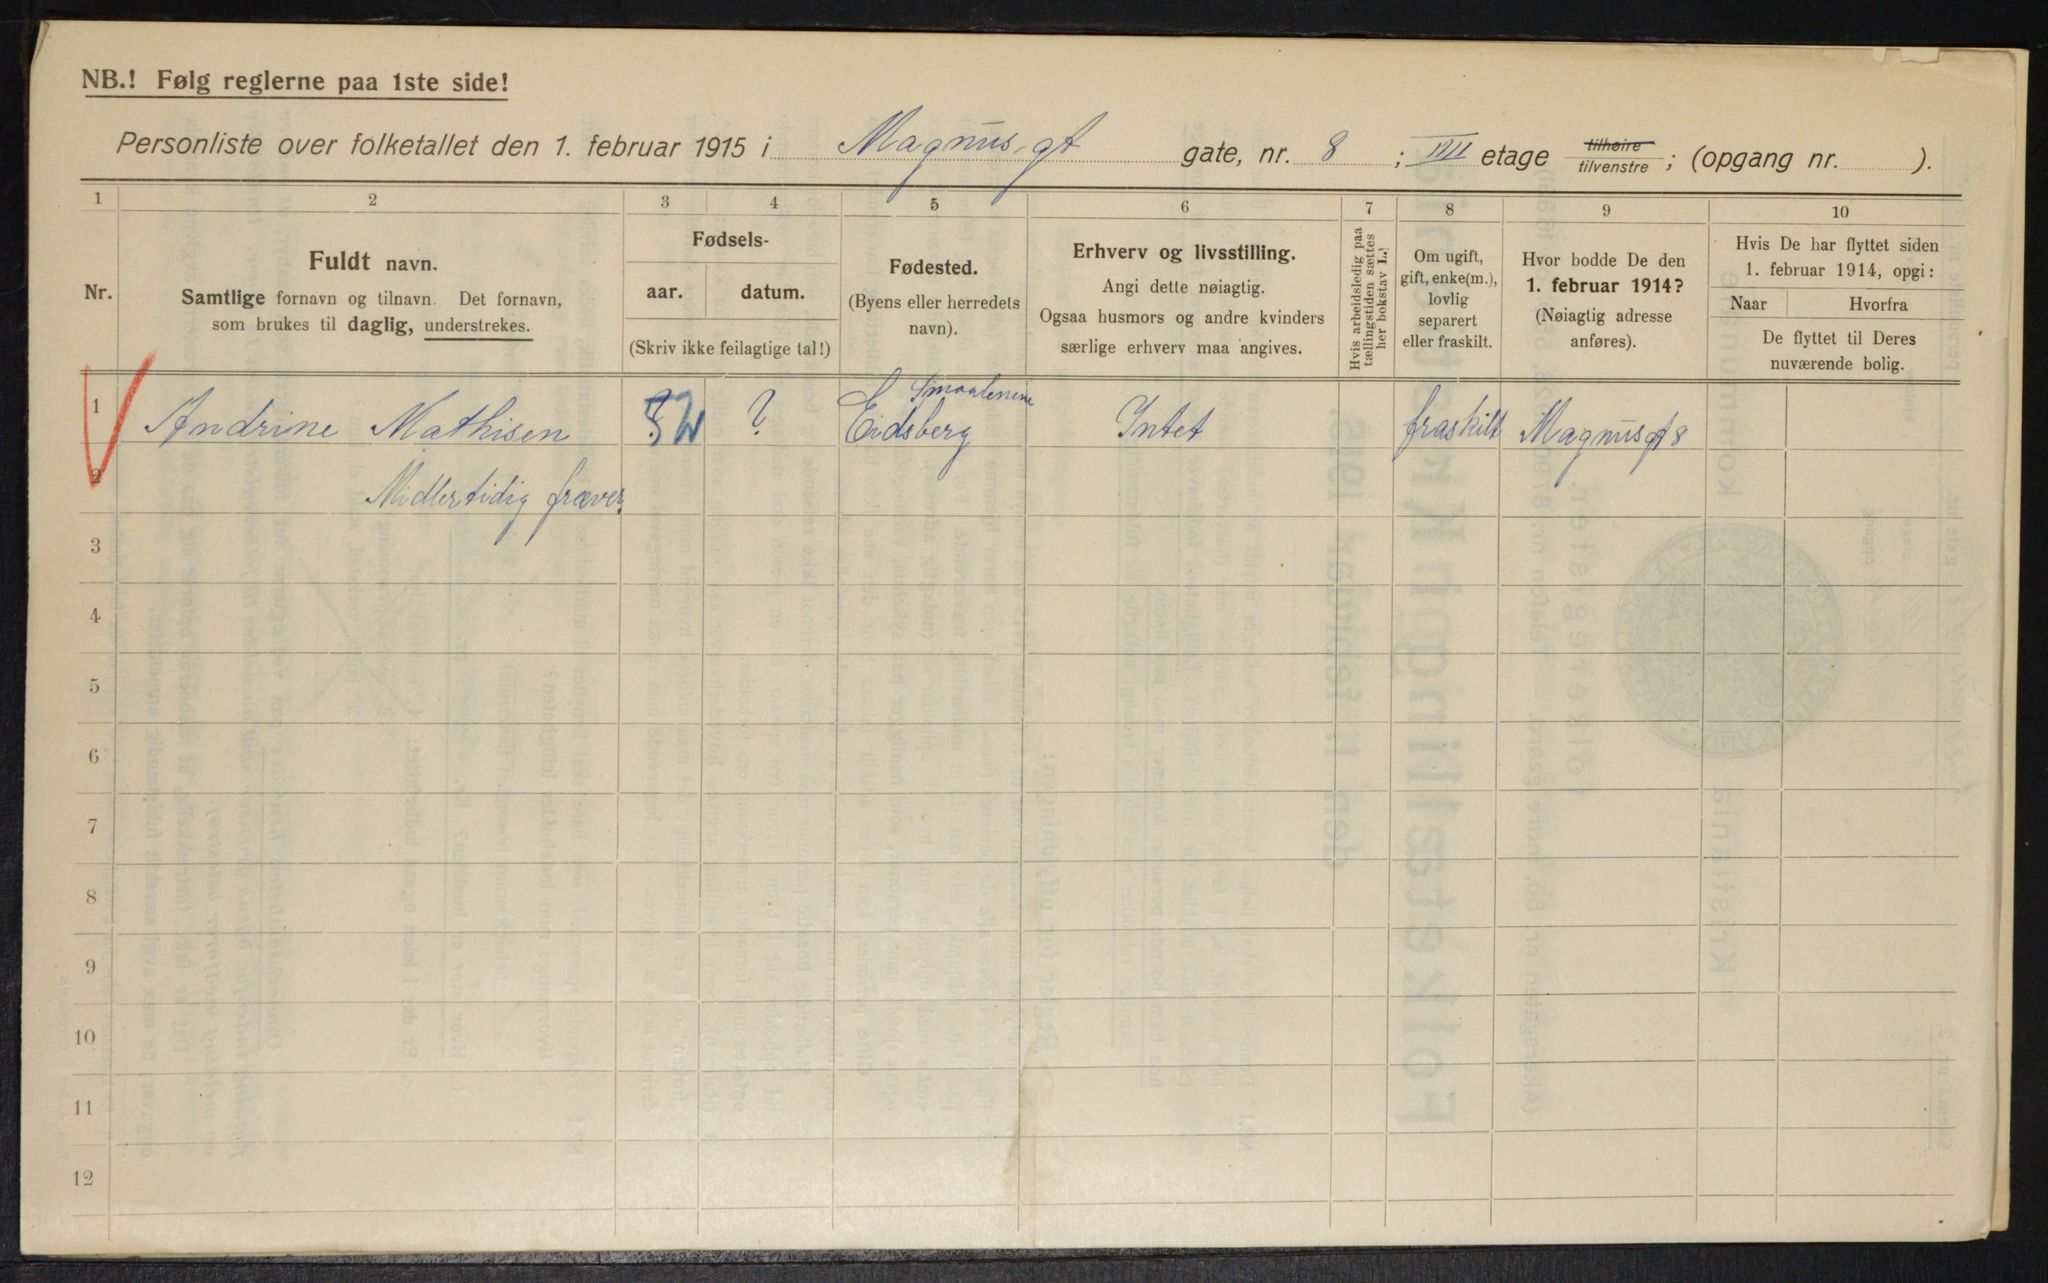 NB.! Følg reglerne paa 1ste side!
Personliste over folketallet den 1. februar 1915 i Magnus gt gate, nr. 8 ; III etage tilhøire / tilvenstre ; (opgang nr. ).
1 2 3 4 5 6 7 8 9 10
Nr.
Fuldt navn.
Samtlige fornavn og tilnavn. Det fornavn,
som brukes til daglig, understrekes.
Fødsels-
aar. datum.
(Skriv ikke feilagtige tal!)
Fødested.
(Byens eller herredets
navn).
Erhverv og livsstilling.
Angi dette nøiagtig.
Ogsaa husmors og andre kvinders
særlige erhverv maa angives.
Hvis arbeidsledig paa
tællingstiden sættes
her bokstav L.
Om ugift,
gift, enke(m.),
lovlig
separert
eller fraskilt.
Hvor bodde De den
1. februar 1914?
(Nøiagtig adresse
anføres).
Hvis De har flyttet siden
1. februar 1914, opgi:
Naar Hvorfra
De flyttet til Deres
nuværende bolig.
Smaalenene
1 Andrine Mathisen ? Eidsberg Intet fraskilt Magnus gt 8
2 Midlertidig fraver.
3
4
5
6
7
8
9
10
11
12